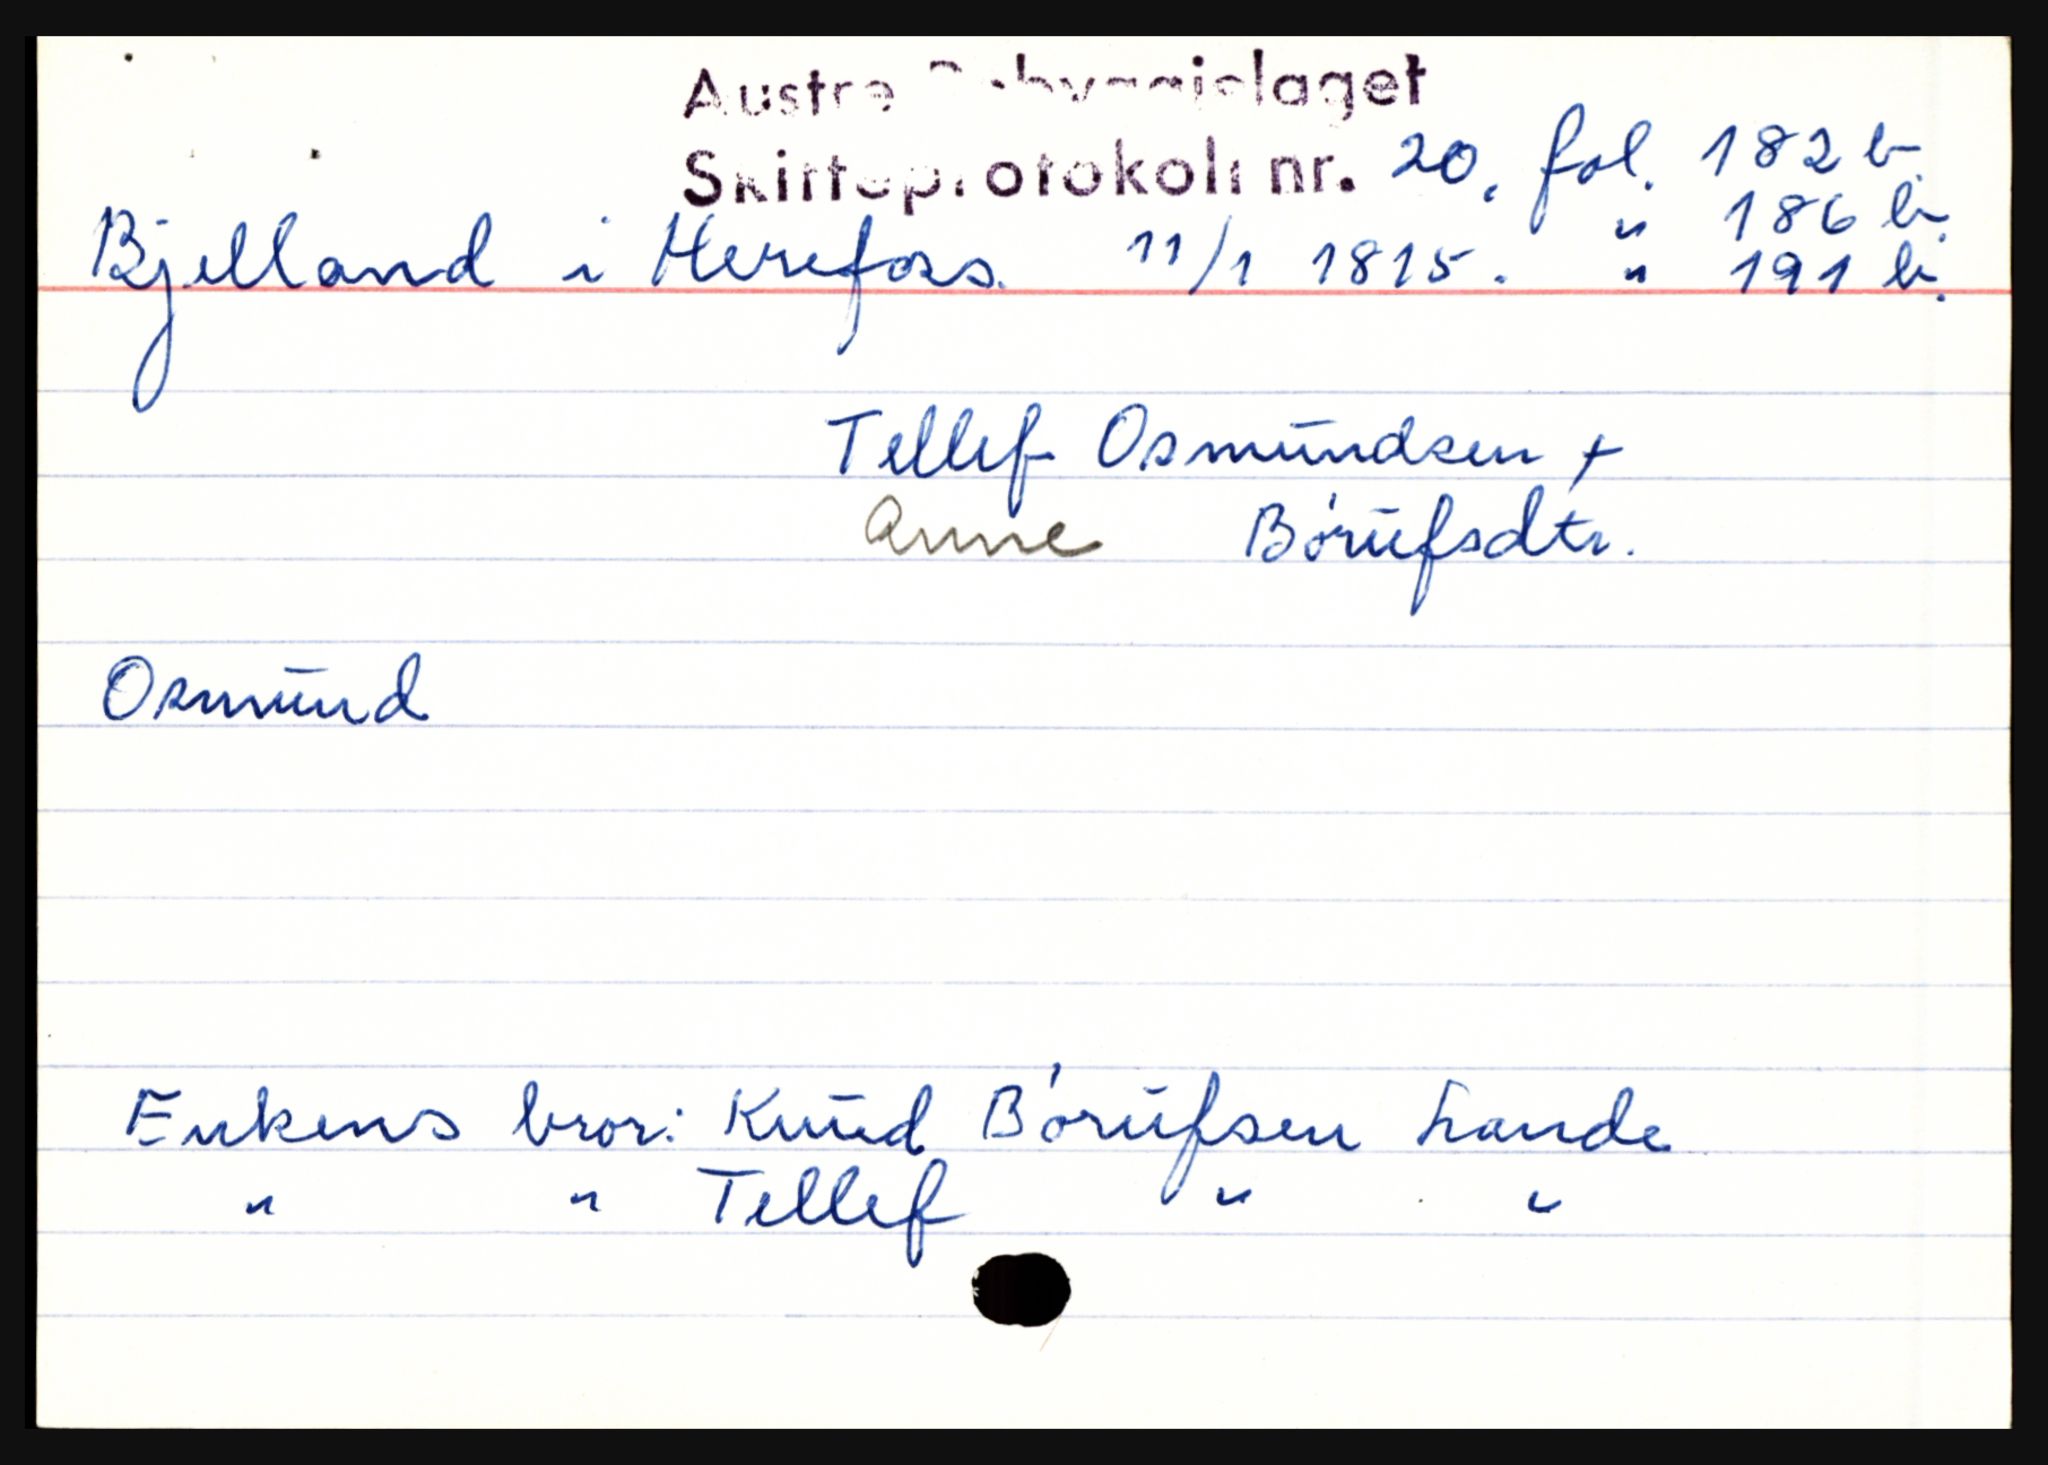 Austre Råbyggjelaget
Skifteprotokoll nr. 20. fol. 182 b.
" 186 b.
Bjelland i Herefoss. 11/1 1815. " 191 b.
Tellef Osmundsen +
Anne Bórufsdtr.
Osmund
Enkens bror: Knud Bórufsen Lande
" " Tellef " "